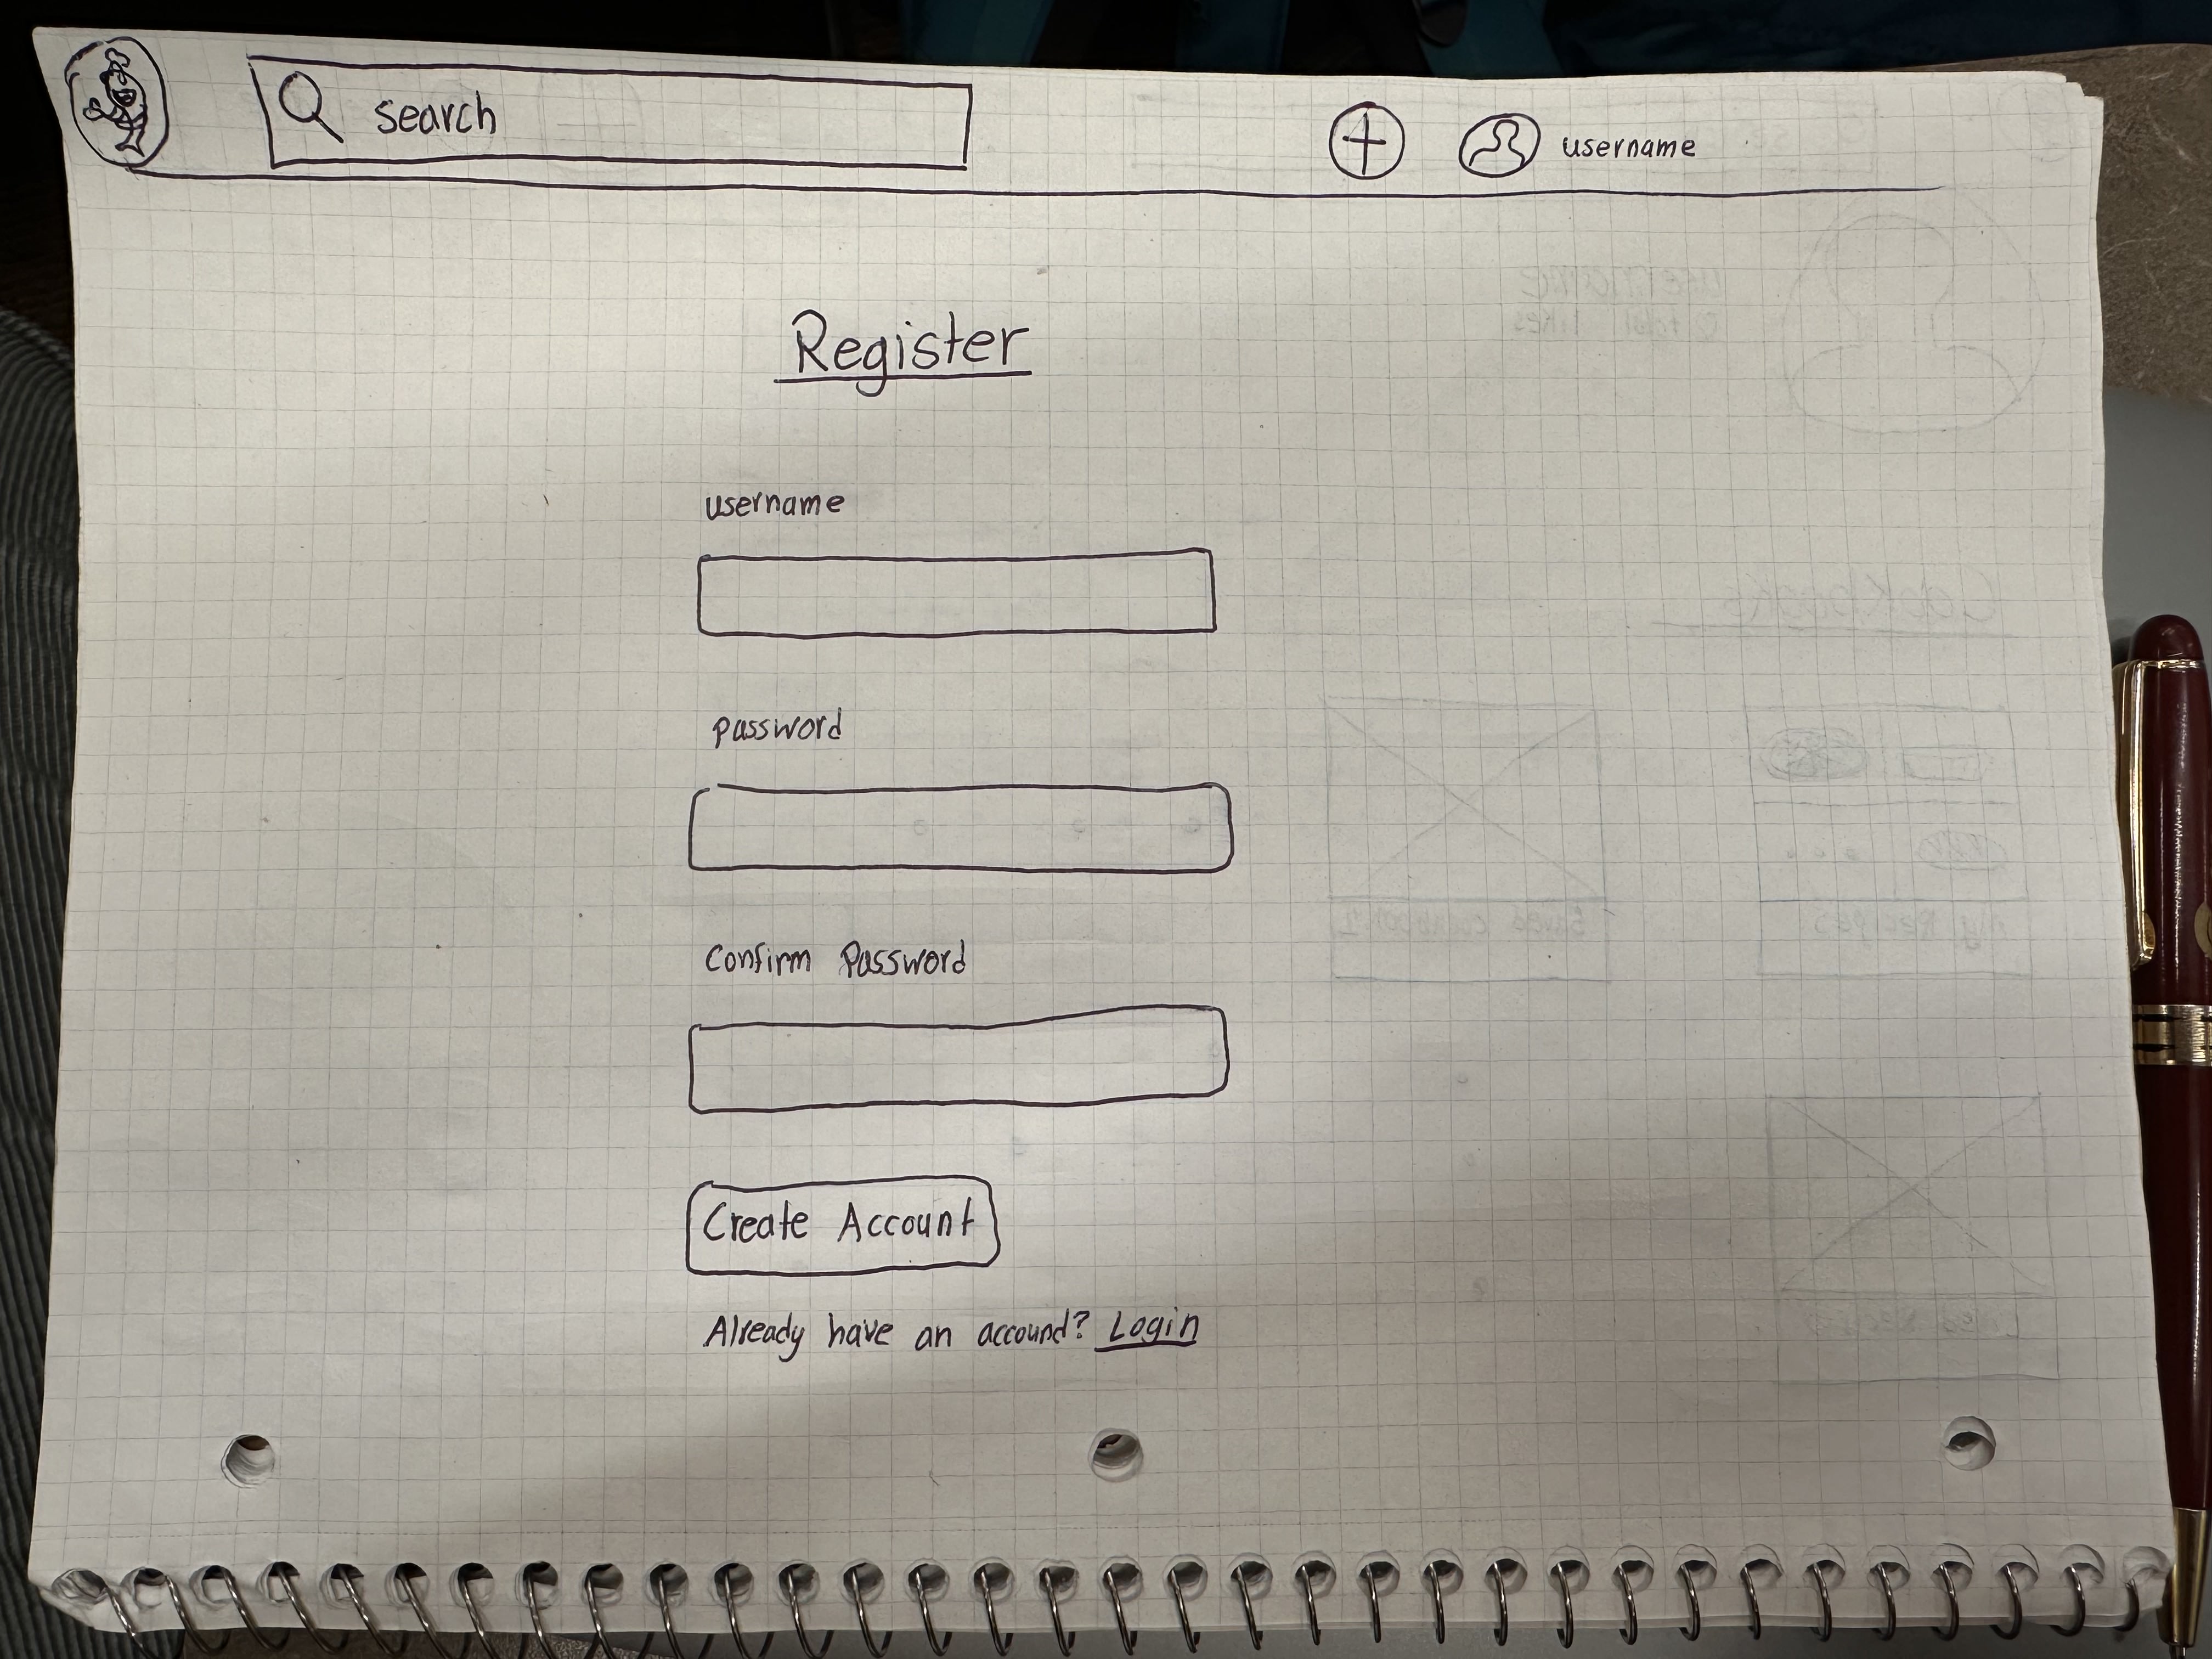 search
username
Register
username
password
Confirm Password
Create Account
Already have an account? Login